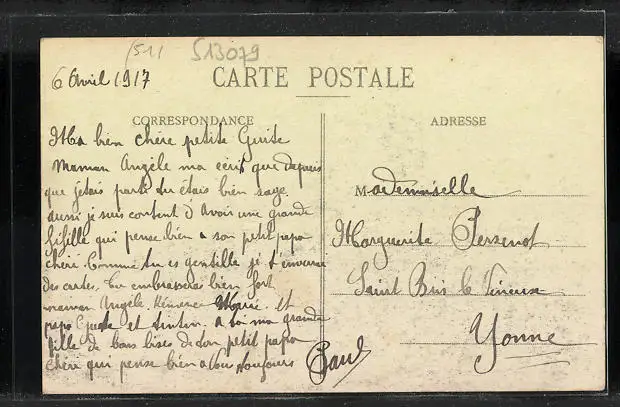 (511
513079
6 Avril 1917
CARTE POSTALE
CORRESPONDANCE
ADRESSE
Ma bien chère petite Guite
Maman Angèle ma écrit que depuis
que jetais parti tu étais bien sage
aussi je suis content d'avoir une grande
fifille qui pense bien a son petit papa
chéri. Comme tu es gentille je t'enverrai
des cartes. Tu embrasseras bien fort
maman Angèle. Marie. et
papa et tonton. a toi ma grande
fille de bons bises de ton petit papa
chéri qui pense bien a vous toujours
Paul
Mademoiselle
Marguerite
Saint Bris le Vineux
Yonne